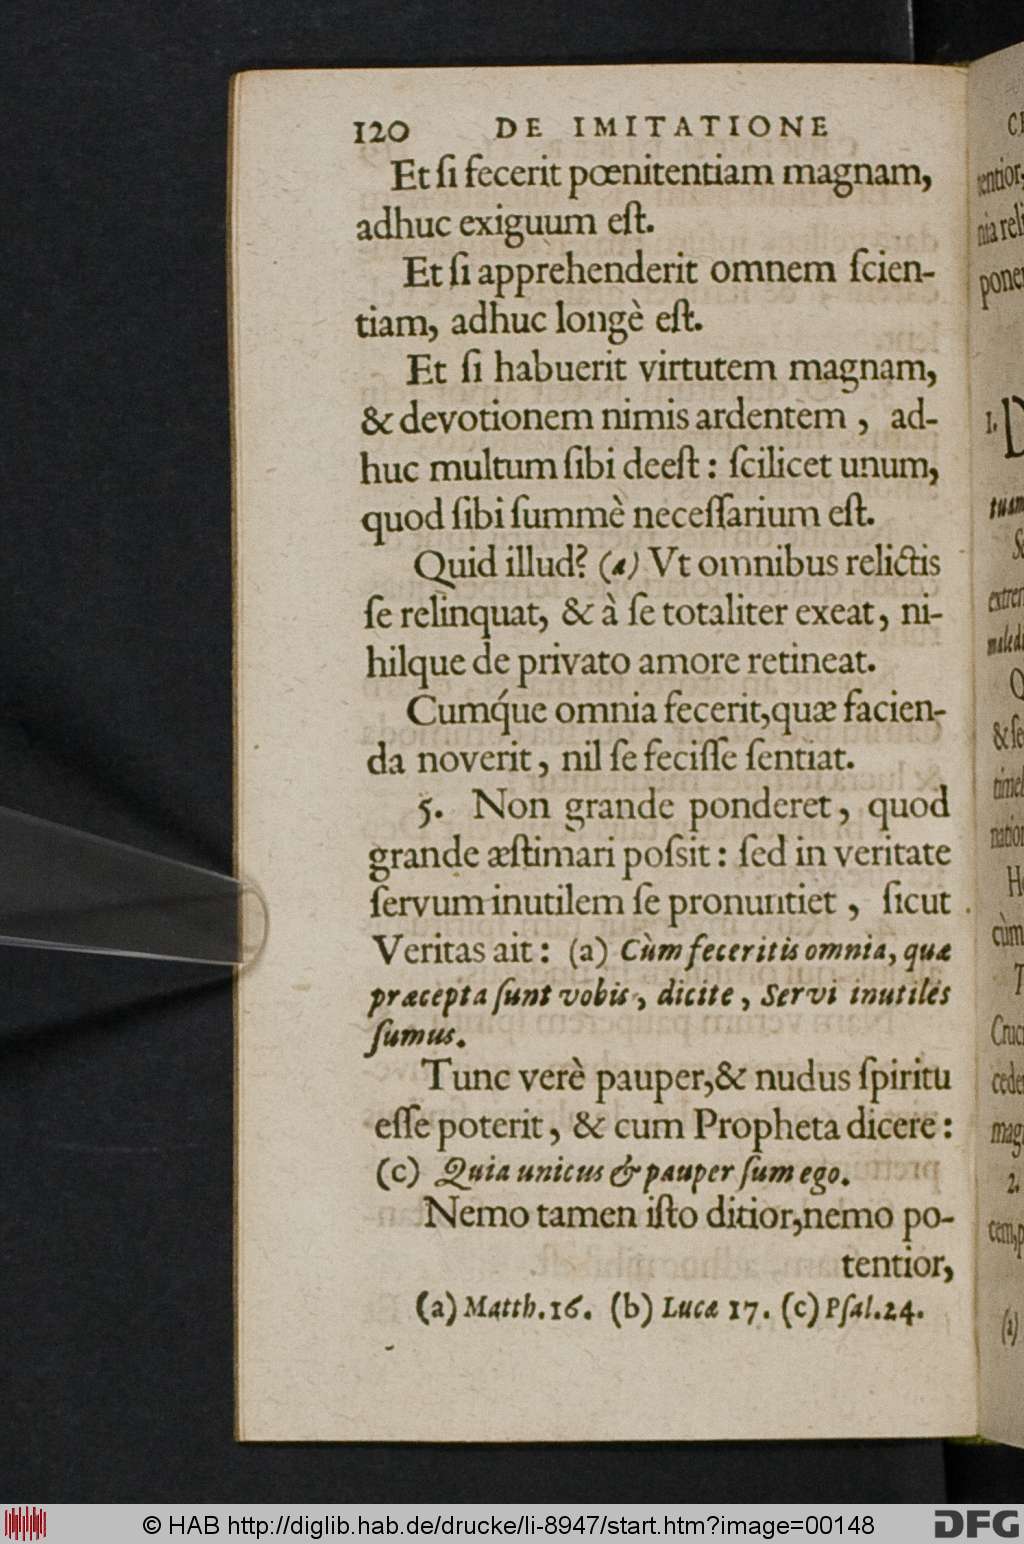 120 DE IMITATIONE
Et ſi fecerit pœnitentiam magnam,
adhuc exiguum eſt.
Et ſi apprehenderit omnem ſcien-
tiam, adhuc longè eſt.
Et ſi habuerit virtutem magnam,
& devotionem nimis ardentem, ad-
huc multum ſibi deeſt: ſcilicet unum,
quod ſibi ſummè neceſſarium eſt.
Quid illud? (a) Vt omnibus relictis
ſe relinquat, & à ſe totaliter exeat, ni-
hilque de privato amore retineat.
Cumq́ue omnia fecerit, quæ facien-
da noverit, nil ſe feciſſe ſentiat.
5. Non grande ponderet, quod
grande æſtimari poſsit: ſed in veritate
ſervum inutilem ſe pronuntiet, ſicut
Veritas ait: (a) Cùm feceritis omnia, quæ
præcepta ſunt vobis, dicite, Servi inutiles
ſumus.
Tunc verè pauper, & nudus ſpiritu
eſſe poterit, & cum Propheta dicere:
(c) Quia unicus & pauper ſum ego.
Nemo tamen iſto ditior, nemo po-
tentior,
(a) Matth. 16. (b) Lucæ 17. (c) Pſal. 24.
tentior,
nia reli
ponen
1. D
tuam
extrem
maledi
& ſe
timeb
nation
cùm
Cruci
cedet
magn
2.
cem, p
© HAB http://diglib.hab.de/drucke/li-8947/start.htm?image=00148
DFG